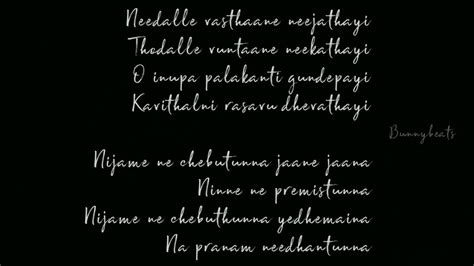 Needalle vasthaane neejathayi
Thodalle vuntaane neekathayi
O inupa palakanti gundepayi
Kavithalni rasavu dhevathayi
Bunnybeats
Nijame ne chebutunna jaane jaana
Ninne ne premistunna
Nijame ne chebuthunna yedhemaina
Na pranam needhantunna